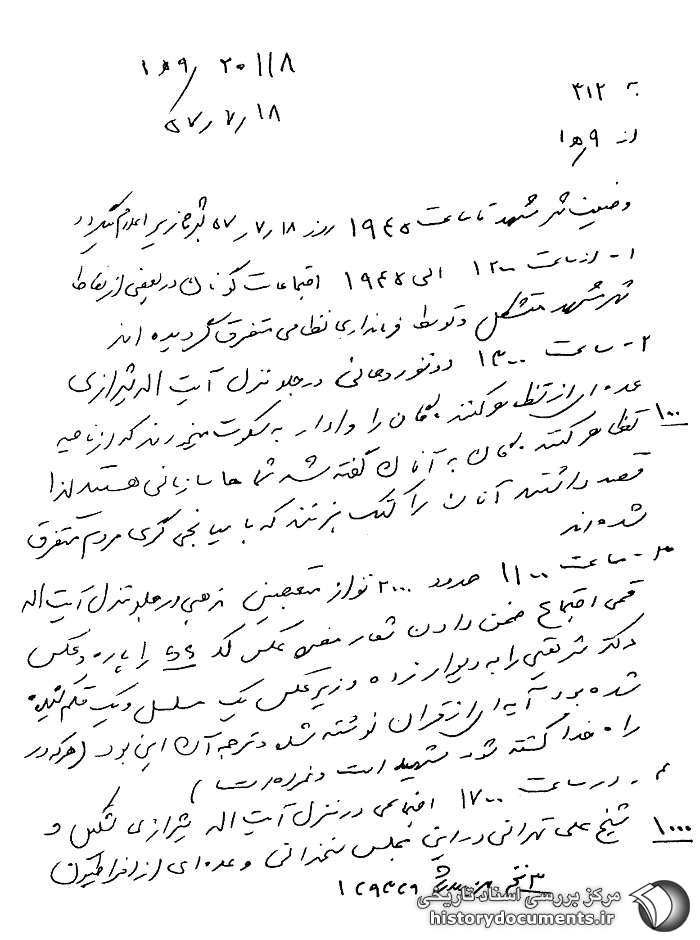 ۲۰۱۱۸ / ۹ ه‍ ۱
۵۷/۷/۱۸
به ۳۱۲
از ۹ ه‍ ۱
وضعیت شهر مشهد تا ساعت ۱۹۴۵ روز ۵۷/۷/۱۸ بشرح زیر اعلام میگردد
۱- از ساعت ۱۲۰۰ الی ۱۹۴۵ اجتماعات گوناگون در بعضی از نقاط
شهر مشهد متشکل و توسط فرمانداری نظامی متفرق گردیده اند
۲- ساعت ۱۳۰۰ دو نفر روحانی در جلو منزل آیت اله شیرازی
عده ای از تظاهر کنندگان را وادار به سکوت مینمودند که از ناحیه
تظاهر کنندگان به آنان گفته شد شما ها سازمانی هستید لذا
قصد داشتند آنان را کتک بزنند که با میانجی گری مردم متفرق
شده اند
۳- ساعت ۱۱۰۰ حدود ۲۰۰۰ نفر از متعصبین مذهبی در جلو منزل آیت اله
قمی اجتماع ضمن دادن شعار عکس کد ۶۶ را پاره و عکس
دکتر شریعتی را به دیوار زده و زیر عکس یک مسلسل و یک قلم کشیده
شده بود آیه ای از قران نوشته شده و ترجمه آن این بود (هر که در
راه خدا کشته شود شهید است و نمرده است)
۴- در ساعت ۱۷۰۰ اجتماعی در منزل آیت اله شیرازی تشکیل و
شیخ علی تهرانی در این مجلس سخنرانی و عده ای از افراطیون
۱۰۰
۱۰۰۰
مرکز بررسی اسناد تاریخی
historydocuments.ir